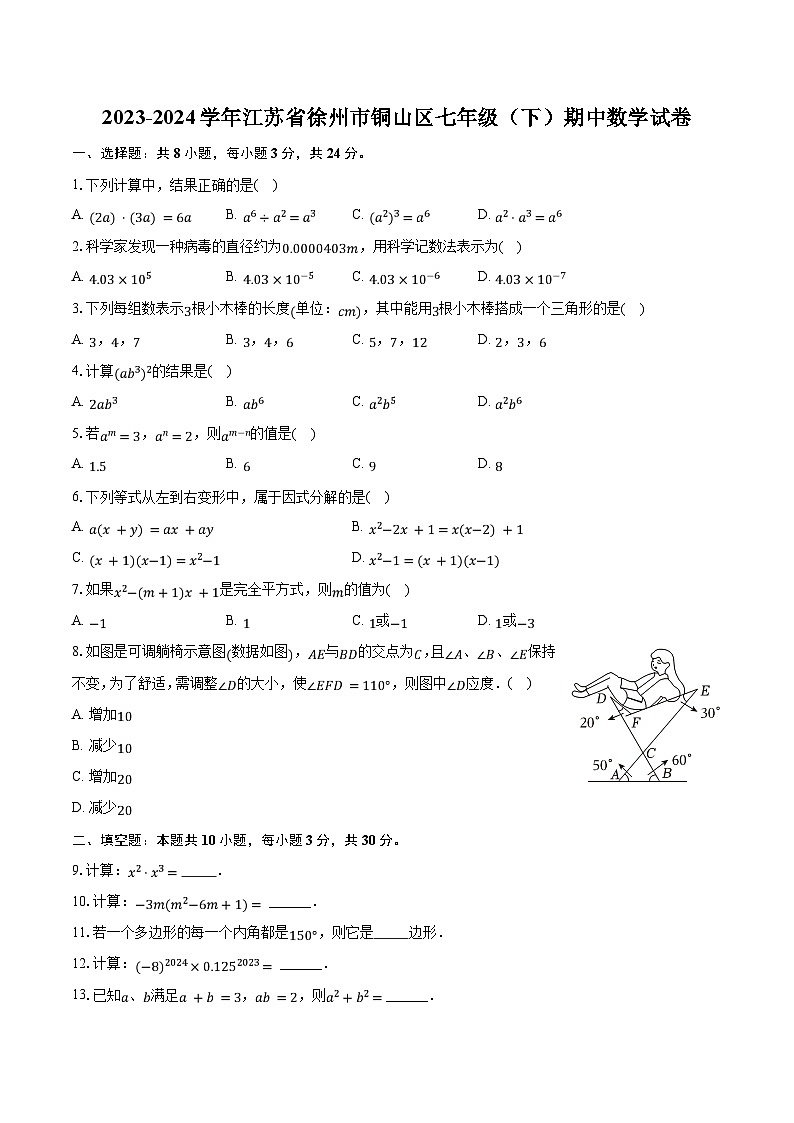 2023-2024学年江苏省徐州市铜山区七年级（下）期中数学试卷
一、选择题：共8小题，每小题3分，共24分。
1.下列计算中，结果正确的是( )
A. (2a)·(3a)=6a B. a⁶÷a²=a³ C. (a²)³=a⁶ D. a²·a³=a⁶
2.科学家发现一种病毒的直径约为0.0000403m，用科学记数法表示为( )
A. 4.03×10⁵ B. 4.03×10⁻⁵ C. 4.03×10⁻⁶ D. 4.03×10⁻⁷
3.下列每组数表示3根小木棒的长度(单位：cm)，其中能用3根小木棒搭成一个三角形的是( )
A. 3，4，7 B. 3，4，6 C. 5，7，12 D. 2，3，6
4.计算(ab³)²的结果是( )
A. 2ab³ B. ab⁶ C. a²b⁵ D. a²b⁶
5.若aᵐ=3，aⁿ=2，则aᵐ⁻ⁿ的值是( )
A. 1.5 B. 6 C. 9 D. 8
6.下列等式从左到右变形中，属于因式分解的是( )
A. a(x+y)=ax+ay B. x²−2x+1=x(x−2)+1
C. (x+1)(x−1)=x²−1 D. x²−1=(x+1)(x−1)
7.如果x²−(m+1)x+1是完全平方式，则m的值为( )
A. −1 B. 1 C. 1或−1 D. 1或−3
8.如图是可调躺椅示意图(数据如图)，AE与BD的交点为C，且∠A、∠B、∠E保持
不变，为了舒适，需调整∠D的大小，使∠EFD=110°，则图中∠D应度．( )
A. 增加10
B. 减少10
C. 增加20
D. 减少20
D
E
20°
F
30°
C
50°
A
B
60°
二、填空题：本题共10小题，每小题3分，共30分。
9.计算：x²·x³=_____．
10.计算：−3m(m²−6m+1)= ______．
11.若一个多边形的每一个内角都是150°，则它是_____边形．
12.计算：(−8)²⁰²⁴×0.125²⁰²³= ______．
13.已知a、b满足a+b=3，ab=2，则a²+b²=______．